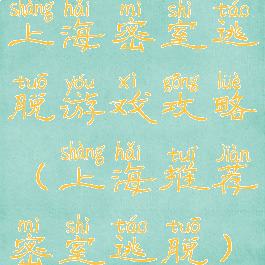 shàng hǎi mì shì táo
上海密室逃
tuō yóu xì gōng lüè
脱游戏攻略
shàng hǎi tuī jiàn
（上海推荐
mì shì táo tuō
密室逃脱）